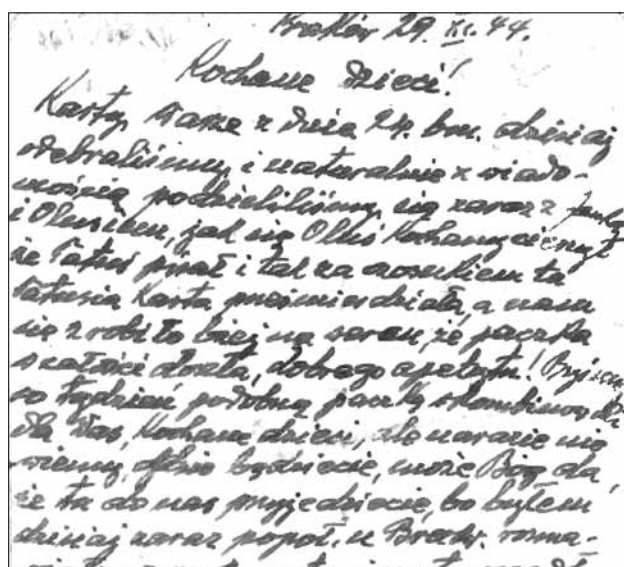 Kraków 29. XI. 44.
Kochane Dzieci!
Kartę, Wasze z dnia 24. bm. dzisiaj
odebraliśmy, i naturalnie z wiado-
mością podzieliliśmy się zaraz z
i Olusiem, jak się Oluś Kochany cieszył
że Tatuś pisał i tak za ta
Tatusia Karta a nam
się zrobiło lżej na sercu, że paczka
w całości doszła, dobrego apetytu!
co tydzień podobną paczkę
dla Was, Kochane dzieci, ale narazie nie
wiemy, gdzie będziecie, może Bóg da,
że tu do nas przyjedziecie, bo byłem
dzisiaj zaraz popoł. u rozma-